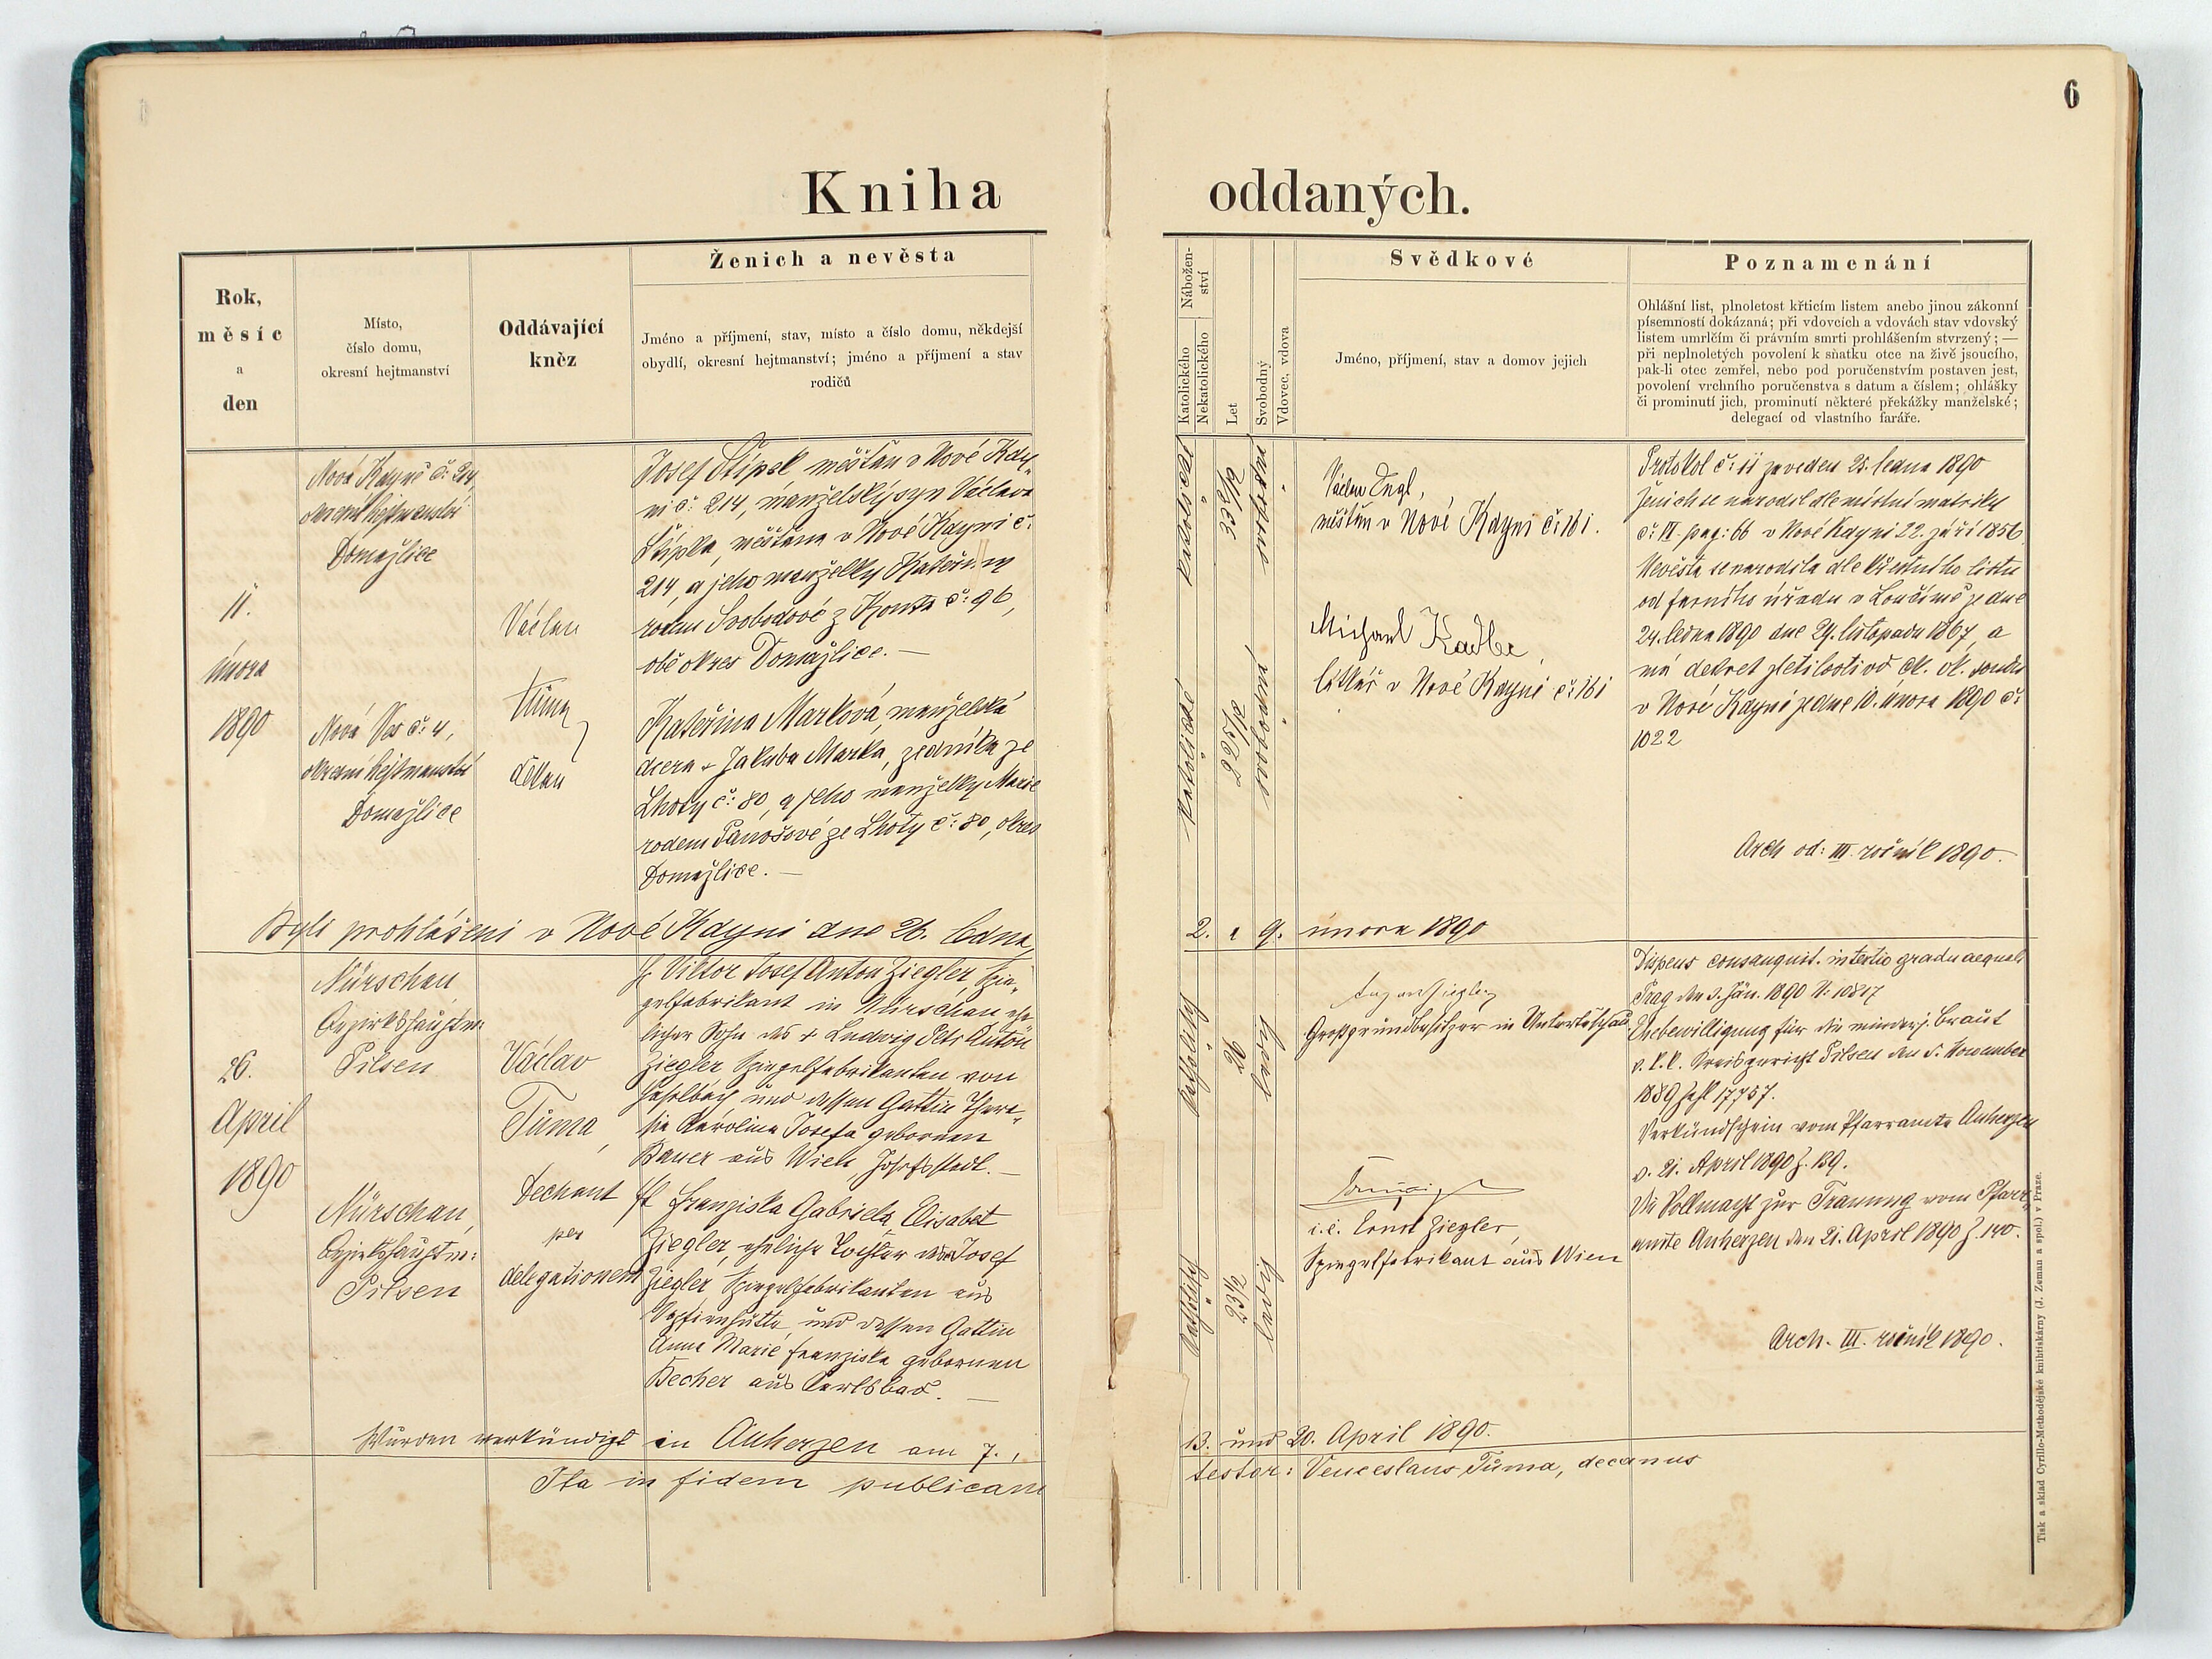 6
Kniha oddaných.
Rok,
měsíc
a
den
Místo,
číslo domu,
okresní hejtmanství
Oddávající
kněz
Ženich a nevěsta
Jméno a příjmení, stav, místo a číslo domu, někdejší
obydlí, okresní hejtmanství; jméno a příjmení a stav
rodičů
Nábožen-
ství
Katolického
Nekatolického
Let
Svobodný
Vdovec, vdova
Svědkové
Jméno, příjmení, stav a domov jejich
Poznamenání
Ohlášní list, plnoletost křticím listem anebo jinou zákonní
písemností dokázaná; při vdovcích a vdovách stav vdovský
listem umrlčím či právním smrti prohlášením stvrzený; —
při neplnoletých povolení k sňatku otce na živě jsoucího,
pak-li otec zemřel, nebo pod poručenstvím postaven jest,
povolení vrchního poručenstva s datum a číslem; ohlášky
či prominutí jich, prominutí některé překážky manželské;
delegací od vlastního faráře.
11.
února
1890
Nová Kdyně č: 214
okresní hejtmanství
Domažlice
Nová Ves č: 4,
okresní hejtmanství
Domažlice
Václav
Tůma,
děkan
Josef Štípek měšťan v Nové Kdy-
ni č: 214, manželský syn Václava
Štípka, měšťana v Nové Kdyni č:
214, a jeho manželky Kateřiny
rodem Svobodové z Kouta č: 96,
obě okres Domažlice. —
Kateřina Marková, manželská
dcera + Jakuba Marka, zedníka ze
Lhoty č: 80, a jeho manželky Marie
rodem Janošové ze Lhoty č: 80, okres
Domažlice. —
katolické
33 5/12
svobodný
katolické
22 5/12
svobodná
Václav Engl,
měštěn v Nové Kdyni č: 161.
Michael Kadlec,
látkář v Nové Kdyni č: 161
Protokol č: 11 zaveden 25. ledna 1890
Ženich se narodil dle místní matriky
č: VI. pag: 66 v Nové Kdyni 22. září 1856
Nevěsta se narodila dle křestního listu
od farního úřadu v Loučimě ze dne
24. ledna 1890 dne 24. listopadu 1867, a
má dekret zletilosti od ck. ok. soudu
v Nové Kdyni ze dne 10. února 1890 č:
1022
Arch od: III. ročník 1890.
Byli prohlášeni v Nové Kdyni dne 26. ledna, 2. a 9. února 1890
26.
April
1890
Nürschau,
Bezirkshauptm:
Pilsen
Nürschau,
Bezirkshauptm:
Pilsen
Václav
Tůma,
Dechant
per
delegationem
H. Viktor Josef Anton Ziegler, Spie-
gelfabrikant in Nürschau, ehe-
licher Sohn des + Ludwig Anton
Ziegler Spiegelfabrikanten von
und dessen Gattin There-
sia Karolina Josefa gebornen
Bauer aus Wien, Josefsstadt. —
Franziska Gabriela Elisabet
Ziegler, eheliche Tochter des Josef
Ziegler, Spiegelfabrikanten aus
und dessen Gattin
Anna Marie Franziska gebornen
Becher aus Carlsbad. —
katholisch
26
ledig
katholisch
23 1/2
ledig
Ziegler
Großgrundbesitzer in
i. e. Ernst Ziegler,
Spiegelfabrikant aus Wien
Dispens consanguit. in tertio gradu aequali
Prag den 3. Jän. 1890 N: 10817
Ehebewilligung für die minderj. Braut
v. k. k. Kreisgericht Pilsen den 5. November
1889 Zahl 17757.
Verkündschein vom Pfarramte Auherzen
v. 21. April 1890 Z. 139.
Die Vollmacht zur Trauung vom Pfarr-
amte Auherzen den 21. April 1890 Z. 140.
Arch. III. ročník 1890.
Wurden verkündigt in Auherzen am 7., 13. und 20. April 1890.
Ita in fidem publicam testor: Venceslaus Tůma, decanus
Tisk a sklad Cyrillo-Methodějské knihtiskárny (J. Zeman a spol.) v Praze.